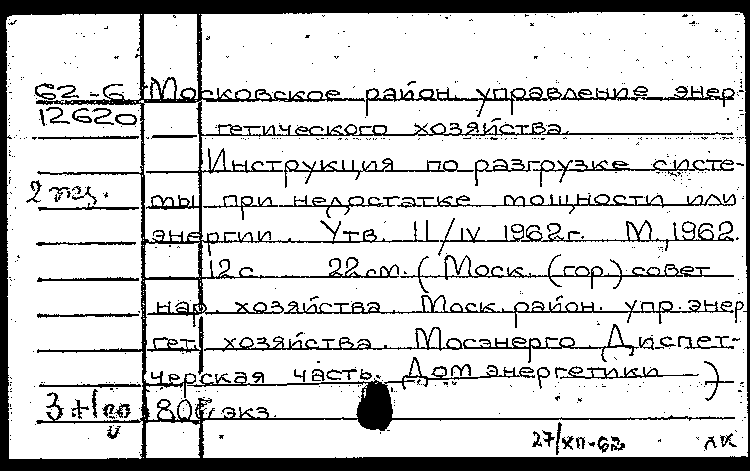 62-6 Московское район. управление энер-
12620 гетического хозяйства.
Инструкция по разгрузке систе-
2 экз. мы при недостатке мощности или
энергии. Утв. 11/IV 1962г. М., 1962.
12с. 22см. (Моск. (гор.) совет
нар. хозяйства. Моск. район. упр. энер
гет. хозяйства. Мосэнерго. Диспет-
черская часть. Дом энергетики)
800 экз.
27/XII-62 ЛК